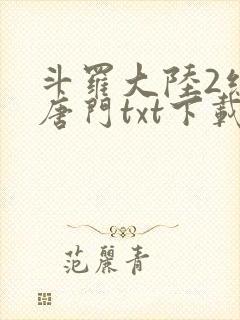 斗羅大陸2
唐門txt下載
范麗青